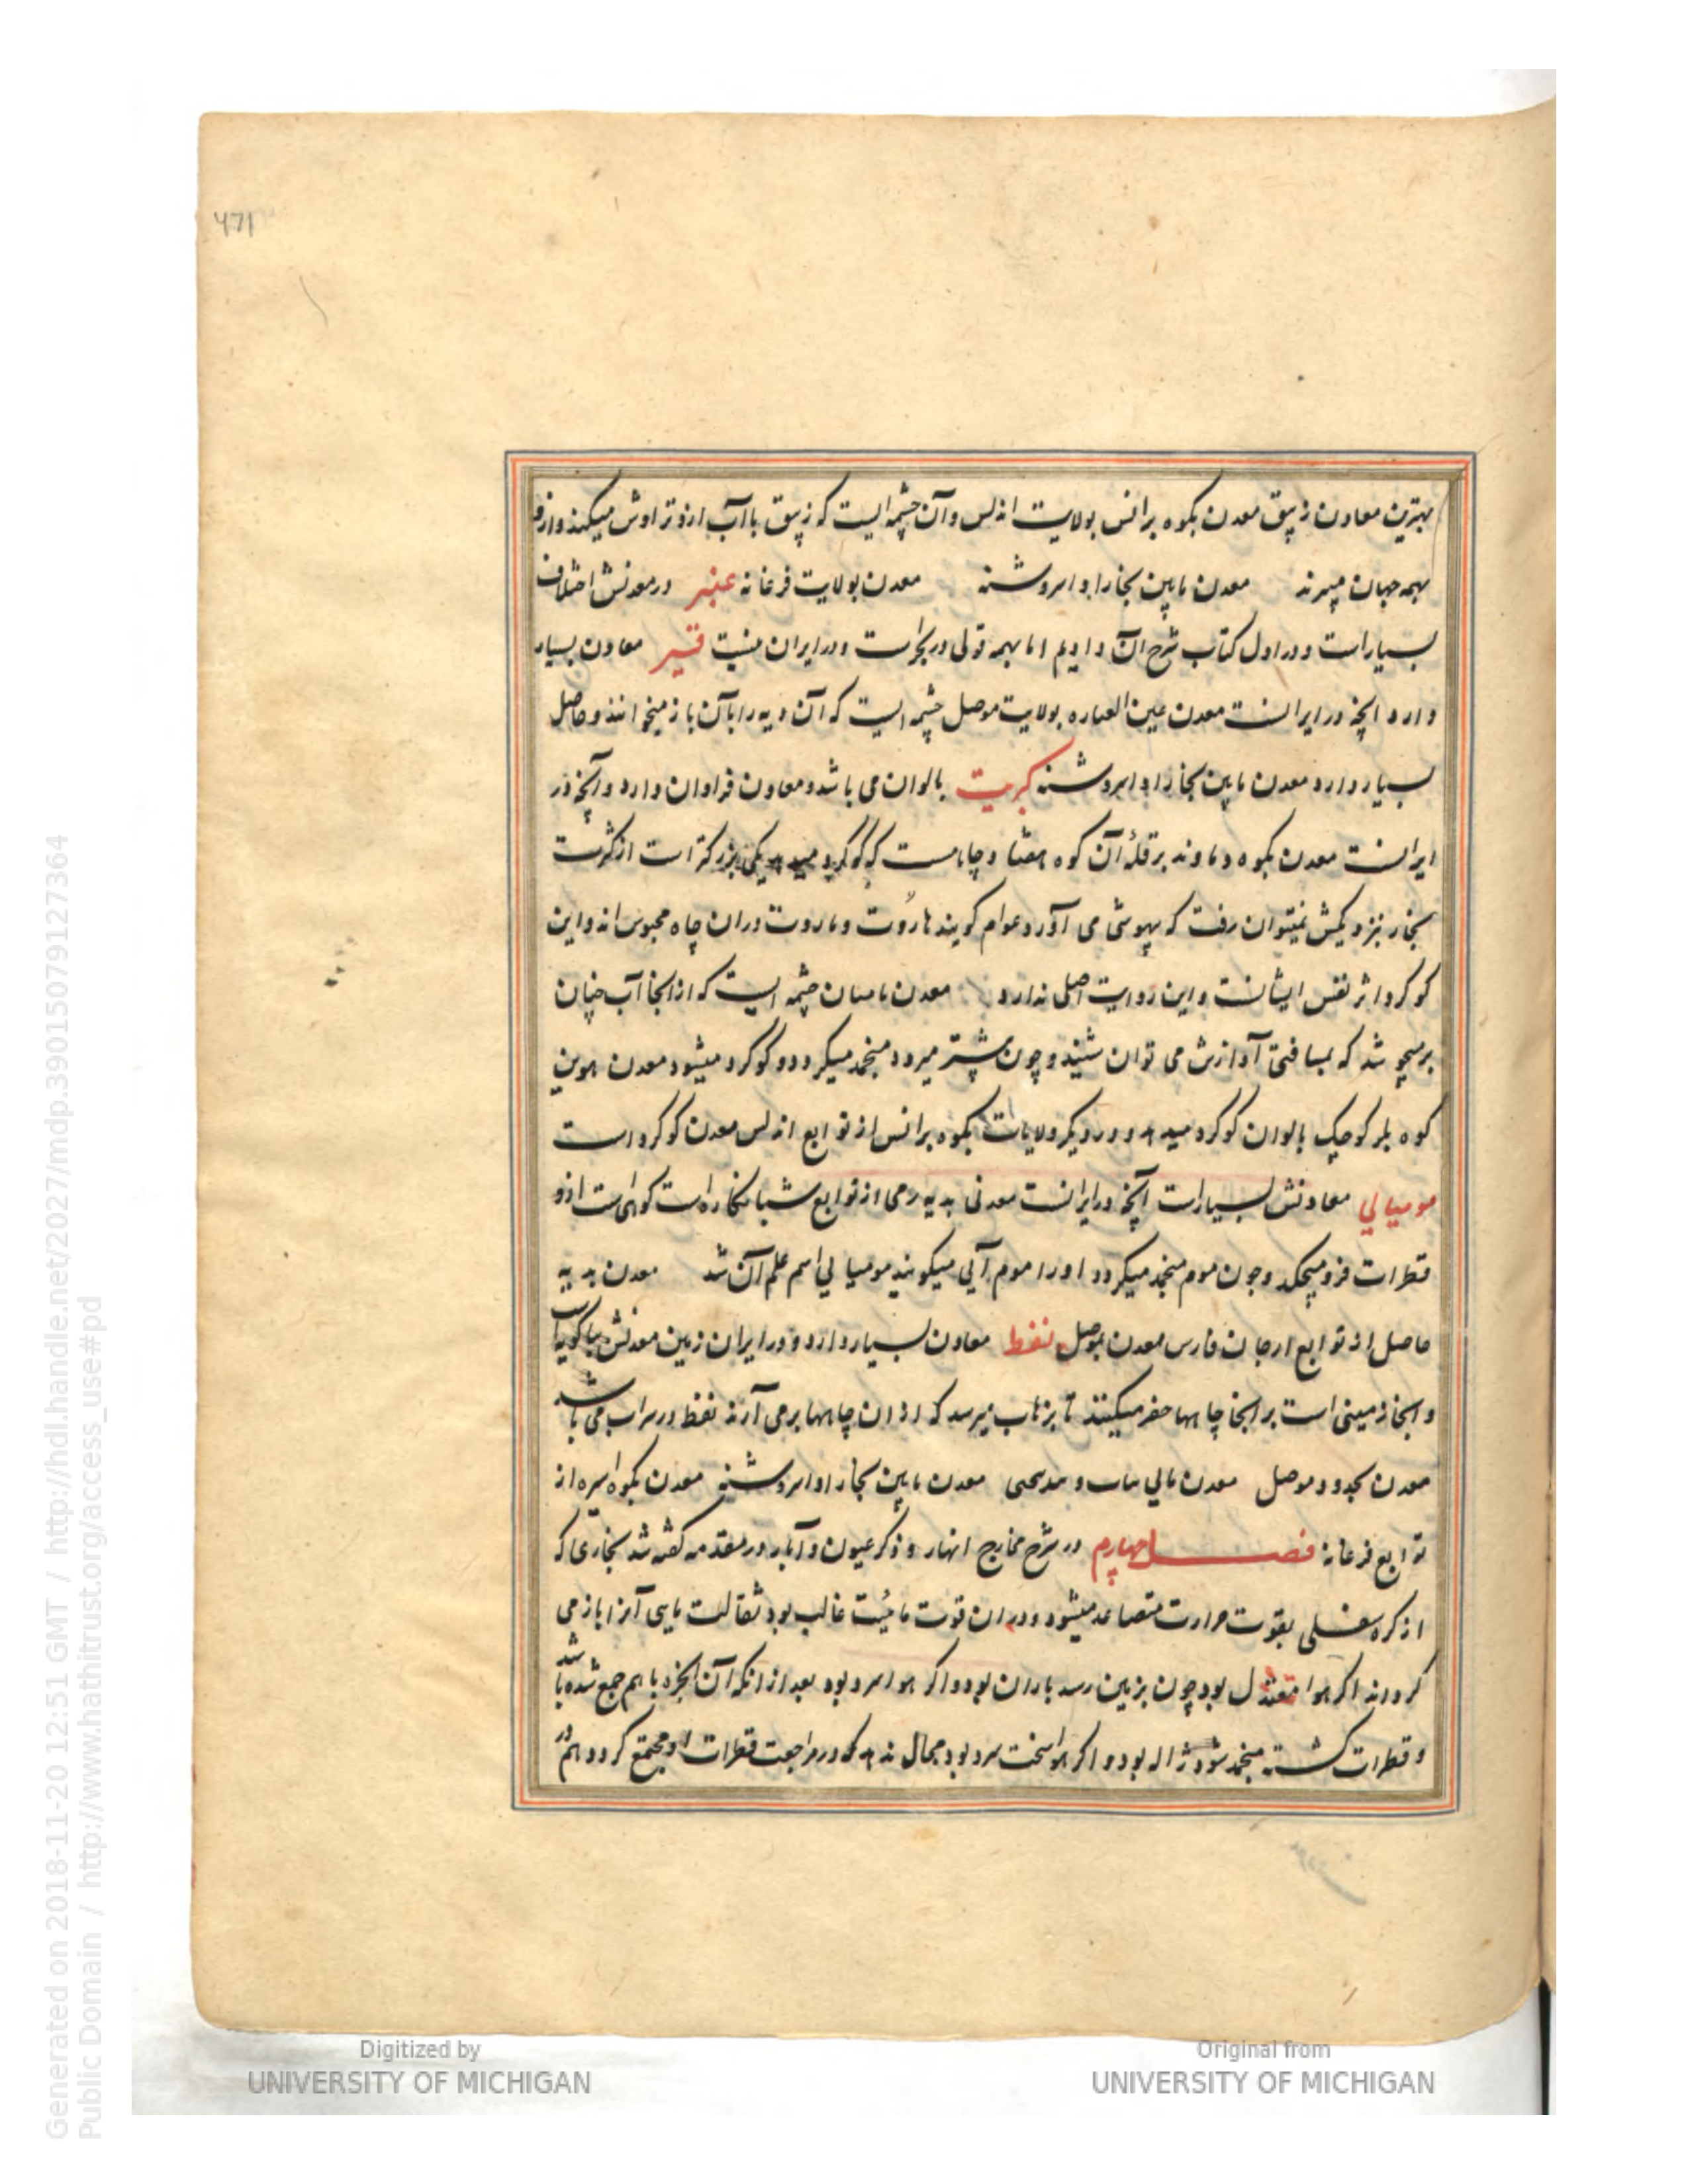 471
بهترین معادن زیبق معدن بکوه برانس بولایت اندلس و آن چشمه ایست که زیبق باآب ازو تراوش میکند و ازو
بهمه جهان میبرند معدن مابین بخارا و اسروشنه معدن بولایت فرغانه عنبر در معدنش اختلاف
بسیار است و در اول کتاب شرح آن دادیم اما بهمه قولی در بحر است و در ایران نیست قیر معادن بسیار
دارد آنچه در ایرانست معدن عین العباره بولایت موصل چشمه ایست که آن دیه را بآن باز میخوانند و حاصل
بسیار دارد معدن مابین بخارا و اسروشنه کبریت بالوان می باشد و معادن فراوان دارد و آنچه در
ایرانست معدن بکوه دماوند بر قلهٔ آن کوه هفتاد چاهست که گوگرد میدهد یکی بزرگتر است از کثرت
بخار بنزدیکش نمیتوان رفت که بیهوشی می آورد عوام گویند هاروت و ماروت در آن چاه محبوس اند و این
گوگرد اثر نفس ایشانست و این روایت اصلی ندارد معدن بامیان چشمه ایست که از آنجا آب چنان
برمیجوشد که بمسافتی آوازش می توان شنید و چون پیشتر میرود منجمد میگردد و گوگرد میشود معدن
کوه کوچک بالوان گوگرد میدهد و در دیگر ولایات بکوه برانس از توابع اندلس معدن گوگرد است
مومیایی معادنش بسیار است آنچه در ایرانست معدنی بدیه از توابع شبانکاره است کوهی است ازو
قطرات فرو میچکد و چون موم منجمد میگردد او را موم آیی میگویند مومیایی اسم علم آن شد معدن بدیه
حاصل از توابع ارجان فارس معدن بموصل نفط معادن بسیار دارد و در ایران زمین معدنش بباکویه است
و آنجا زمینی است بر آنجا چاهها حفر میکنند تا بزهاب میرسد که از آن چاهها برمی آرند نفط در سر آب می باشد
معدن بحدود موصل معدن مابین بخارا و اسروشنه معدن بکوه اسبره از
توابع فرغانه فصل چهارم در شرح مخارج انهار و ذکر عیون و آبار در مقدمه گفته شد بخاری که
از کره سفلی بقوت حرارت متصاعد میشود و در آن قوت مائیت غالب بود ثقالت مایی آنرا باز می
گرداند اگر هوا معتدل بود چون بزمین رسد باران بود و اگر هوا سرد بود بعد از آنکه آن ابخره با هم جمع شده باشد
و قطرات گشته منجمد شود ژاله بود و اگر هوا سخت سرد بود مجال ندهد که در مراجعت قطرات او مجتمع گردد هم در
Digitized by
UNIVERSITY OF MICHIGAN
Original from
UNIVERSITY OF MICHIGAN
Generated on 2018-11-20 12:51 GMT / http://hdl.handle.net/2027/mdp.39015079127364
Public Domain / http://www.hathitrust.org/access_use#pd